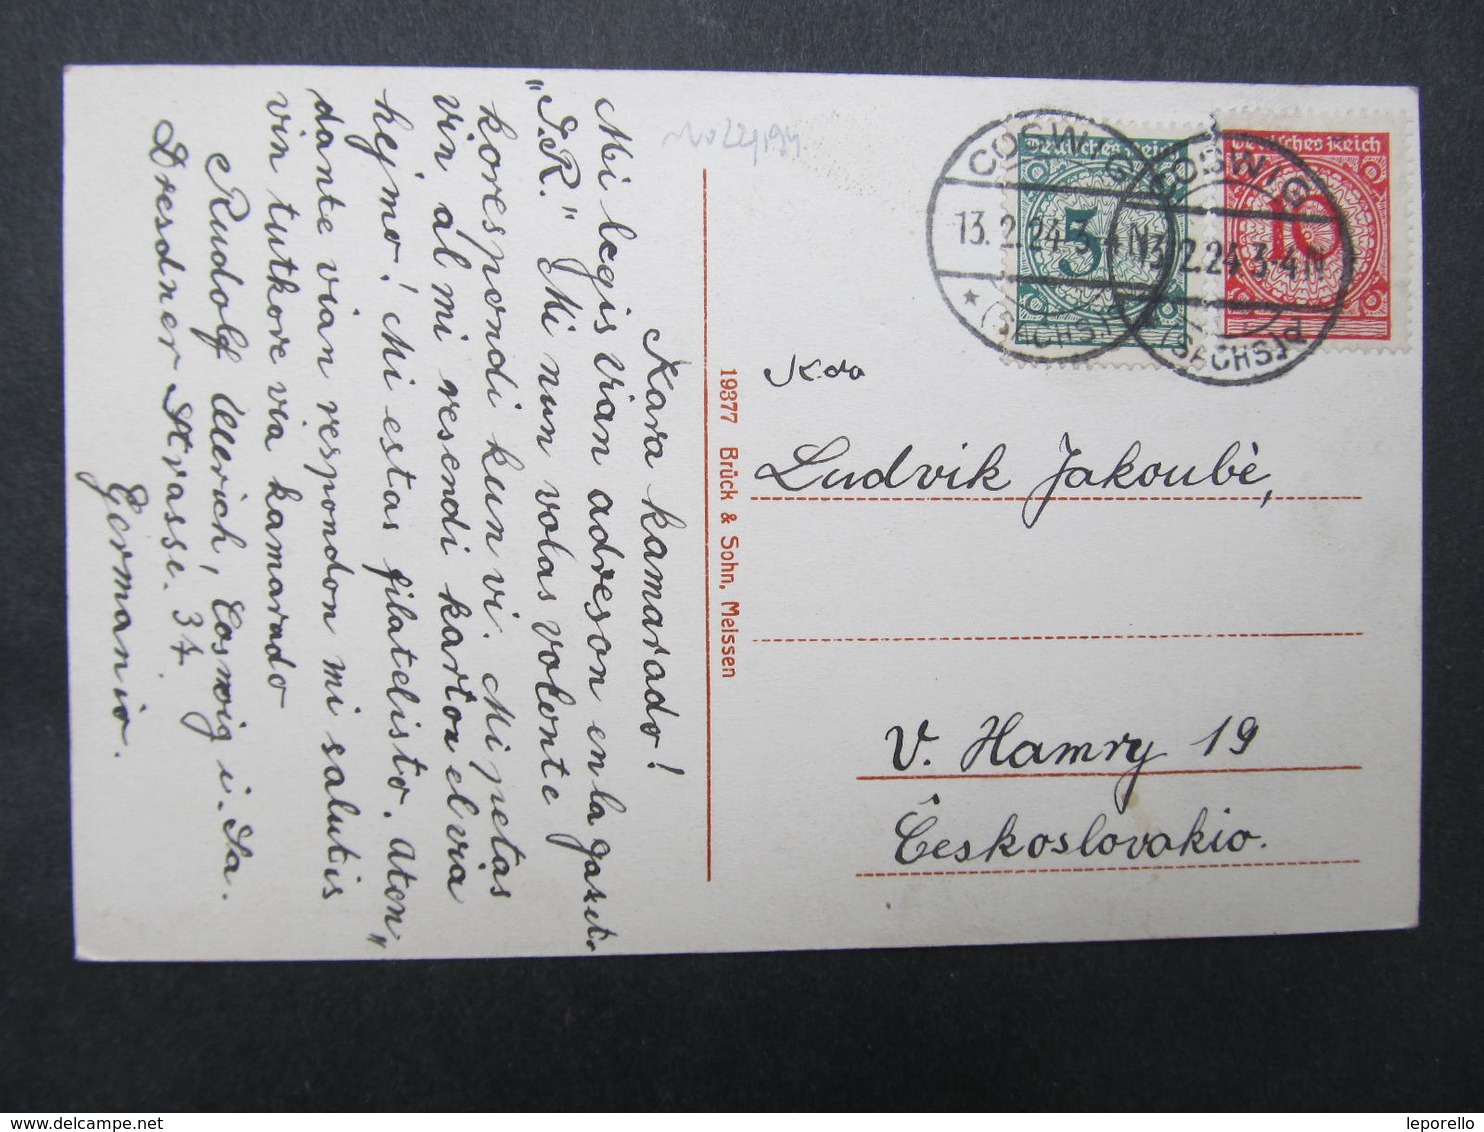 Kara kamarado!
Mi legis vian adreson en la gazet.
"S.R." Mi nun volas volonte
korespondi kun vi. Mi petas
vin al mi resendi karton el via
hejmo! Mi estas filatelisto. Aten„
dante vian respondon mi salutis
vin tutkore via kamarado
Rudolf Ullrich, Coswig i. Sa.
Dresdner Strasse. 37
Germanio.
19377 Brück & Sohn, Meissen
COSWIG
13.2.24 3-4 N
(SACHS.)
COSWIG
13.2.24 3-4 N
(SACHS.) d
Deutsches Reich
5
Deutsches Reich
10
K-do
Ludvik Jakoubè,
V. Hamry 19
Českoslovakio.
leporello
www.delcampe.net